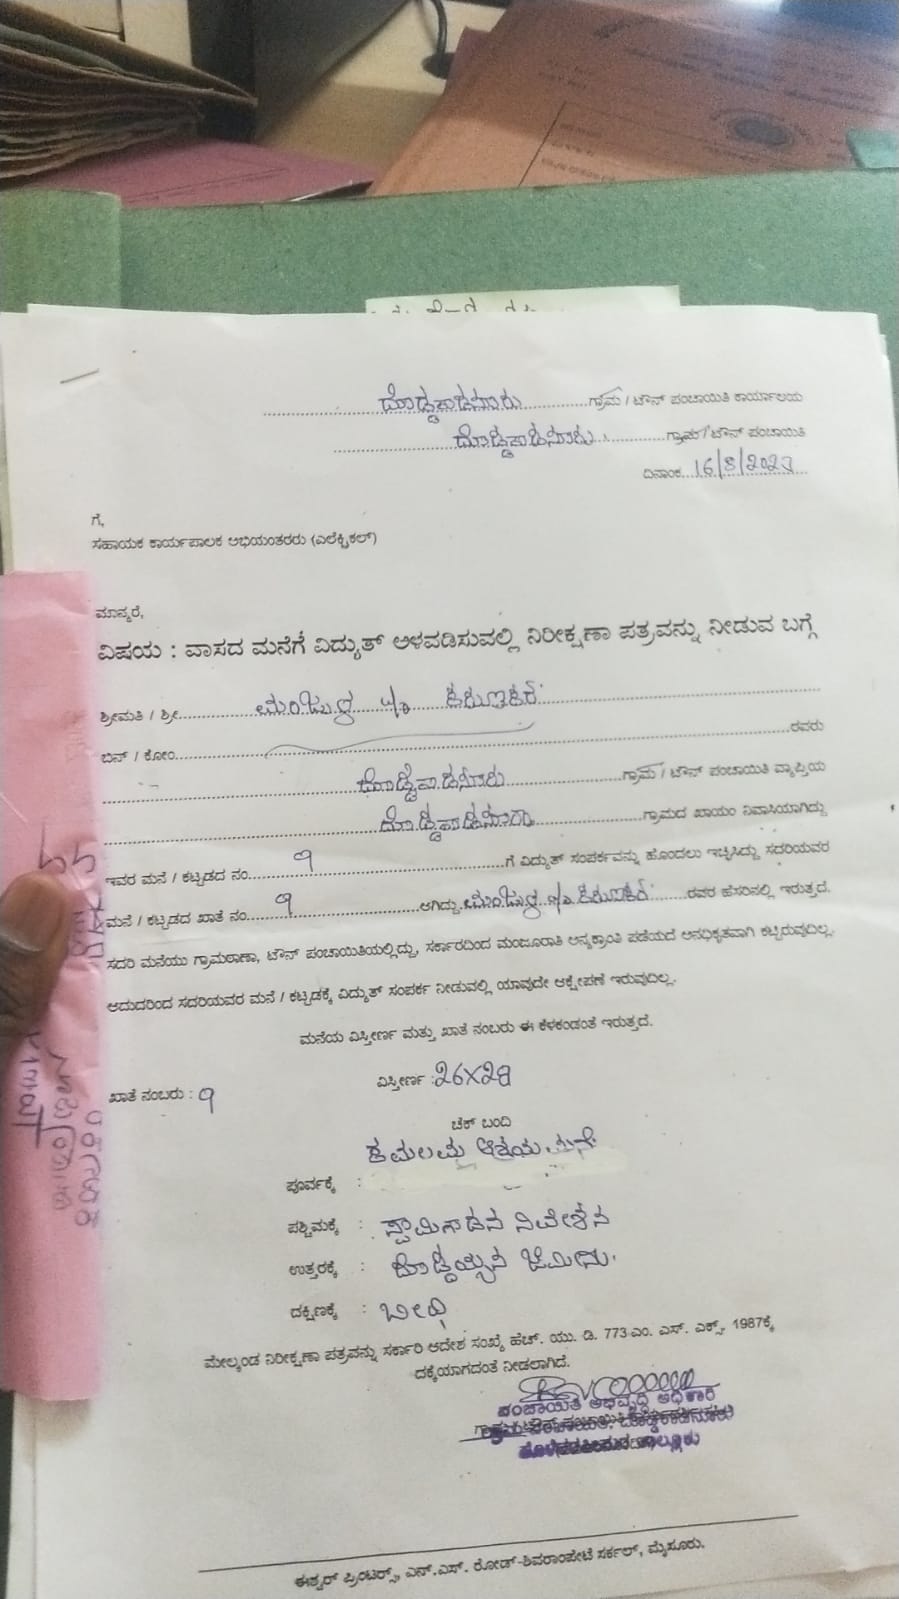 ದೊಡ್ಡಕಾಡನೂರು ಗ್ರಾಮ / ಟೌನ್ ಪಂಚಾಯಿತಿ ಕಾರ್ಯಾಲಯ
ದೊಡ್ಡಕಾಡನೂರು ಗ್ರಾಮ / ಟೌನ್ ಪಂಚಾಯಿತಿ
ದಿನಾಂಕ 16/8/2023
ಗೆ,
ಸಹಾಯಕ ಕಾರ್ಯಪಾಲಕ ಅಭಿಯಂತರರು (ಎಲೆಕ್ಟ್ರಿಕಲ್)
ಮಾನ್ಯರೆ,
ವಿಷಯ : ವಾಸದ ಮನೆಗೆ ವಿದ್ಯುತ್ ಅಳವಡಿಸುವಲ್ಲಿ ನಿರೀಕ್ಷಣಾ ಪತ್ರವನ್ನು ನೀಡುವ ಬಗ್ಗೆ
ಶ್ರೀಮತಿ / ಶ್ರೀ ಮಂಜುಳ w/o ಕರುಣಕರ
ಬಿನ್ / ಕೋಂ ರವರು
ದೊಡ್ಡಕಾಡನೂರು ಗ್ರಾಮ / ಟೌನ್ ಪಂಚಾಯಿತಿ ವ್ಯಾಪ್ತಿಯ
ದೊಡ್ಡಕಾಡನೂರು ಗ್ರಾಮದ ಖಾಯಂ ನಿವಾಸಿಯಾಗಿದ್ದು
ಇವರ ಮನೆ / ಕಟ್ಟಡದ ನಂ. 9 ಗೆ ವಿದ್ಯುತ್ ಸಂಪರ್ಕವನ್ನು ಹೊಂದಲು ಇಚ್ಛಿಸಿದ್ದು ಸದರಿಯವರ
ಮನೆ / ಕಟ್ಟಡದ ಖಾತೆ ನಂ. 9 ಆಗಿದ್ದು ಮಂಜುಳ w/o ಕರುಣಕರ ರವರ ಹೆಸರಿನಲ್ಲಿ ಇರುತ್ತದೆ.
ಸದರಿ ಮನೆಯು ಗ್ರಾಮಠಾಣಾ, ಟೌನ್ ಪಂಚಾಯಿತಿಯಲ್ಲಿದ್ದು, ಸರ್ಕಾರದಿಂದ ಮಂಜೂರಾತಿ ಅನ್ಯಕ್ರಾಂತಿ ಪಡೆಯದೆ ಅನಧಿಕೃತವಾಗಿ ಕಟ್ಟಿರುವುದಿಲ್ಲ.
ಆದುದರಿಂದ ಸದರಿಯವರ ಮನೆ / ಕಟ್ಟಡಕ್ಕೆ ವಿದ್ಯುತ್ ಸಂಪರ್ಕ ನೀಡುವಲ್ಲಿ ಯಾವುದೇ ಆಕ್ಷೇಪಣೆ ಇರುವುದಿಲ್ಲ.
ಮನೆಯ ವಿಸ್ತೀರ್ಣ ಮತ್ತು ಖಾತೆ ನಂಬರು ಈ ಕೆಳಕಂಡಂತೆ ಇರುತ್ತದೆ.
ಖಾತೆ ನಂಬರು : 9 ವಿಸ್ತೀರ್ಣ : 26X28
ಚೆಕ್ ಬಂದಿ
ಕಮಲಮ್ಮ ಆಶ್ರಯ ಮನೆ
ಪೂರ್ವಕ್ಕೆ :
ಪಶ್ಚಿಮಕ್ಕೆ : ಸ್ವಾಮಿಗೌಡನ ನಿವೇಶನ
ಉತ್ತರಕ್ಕೆ : ದೊಡ್ಡಯ್ಯನ ಜಮೀನು.
ದಕ್ಷಿಣಕ್ಕೆ : ಬೀಧಿ
ಮೇಲ್ಕಂಡ ನಿರೀಕ್ಷಣಾ ಪತ್ರವನ್ನು ಸರ್ಕಾರಿ ಆದೇಶ ಸಂಖ್ಯೆ ಹೆಚ್. ಯು. ಡಿ. 773 ಎಂ. ಎಸ್. ಎಕ್ಸ್. 1987ಕ್ಕೆ
ದಕ್ಕೆಯಾಗದಂತೆ ನೀಡಲಾಗಿದೆ.
ಪಂಚಾಯಿತಿ ಅಭಿವೃದ್ಧಿ ಅಧಿಕಾರಿ
ಈಶ್ವರ್ ಪ್ರಿಂಟರ್ಸ್, ಎನ್.ಎಸ್. ರೋಡ್-ಶಿವರಾಂಪೇಟೆ ಸರ್ಕಲ್, ಮೈಸೂರು.